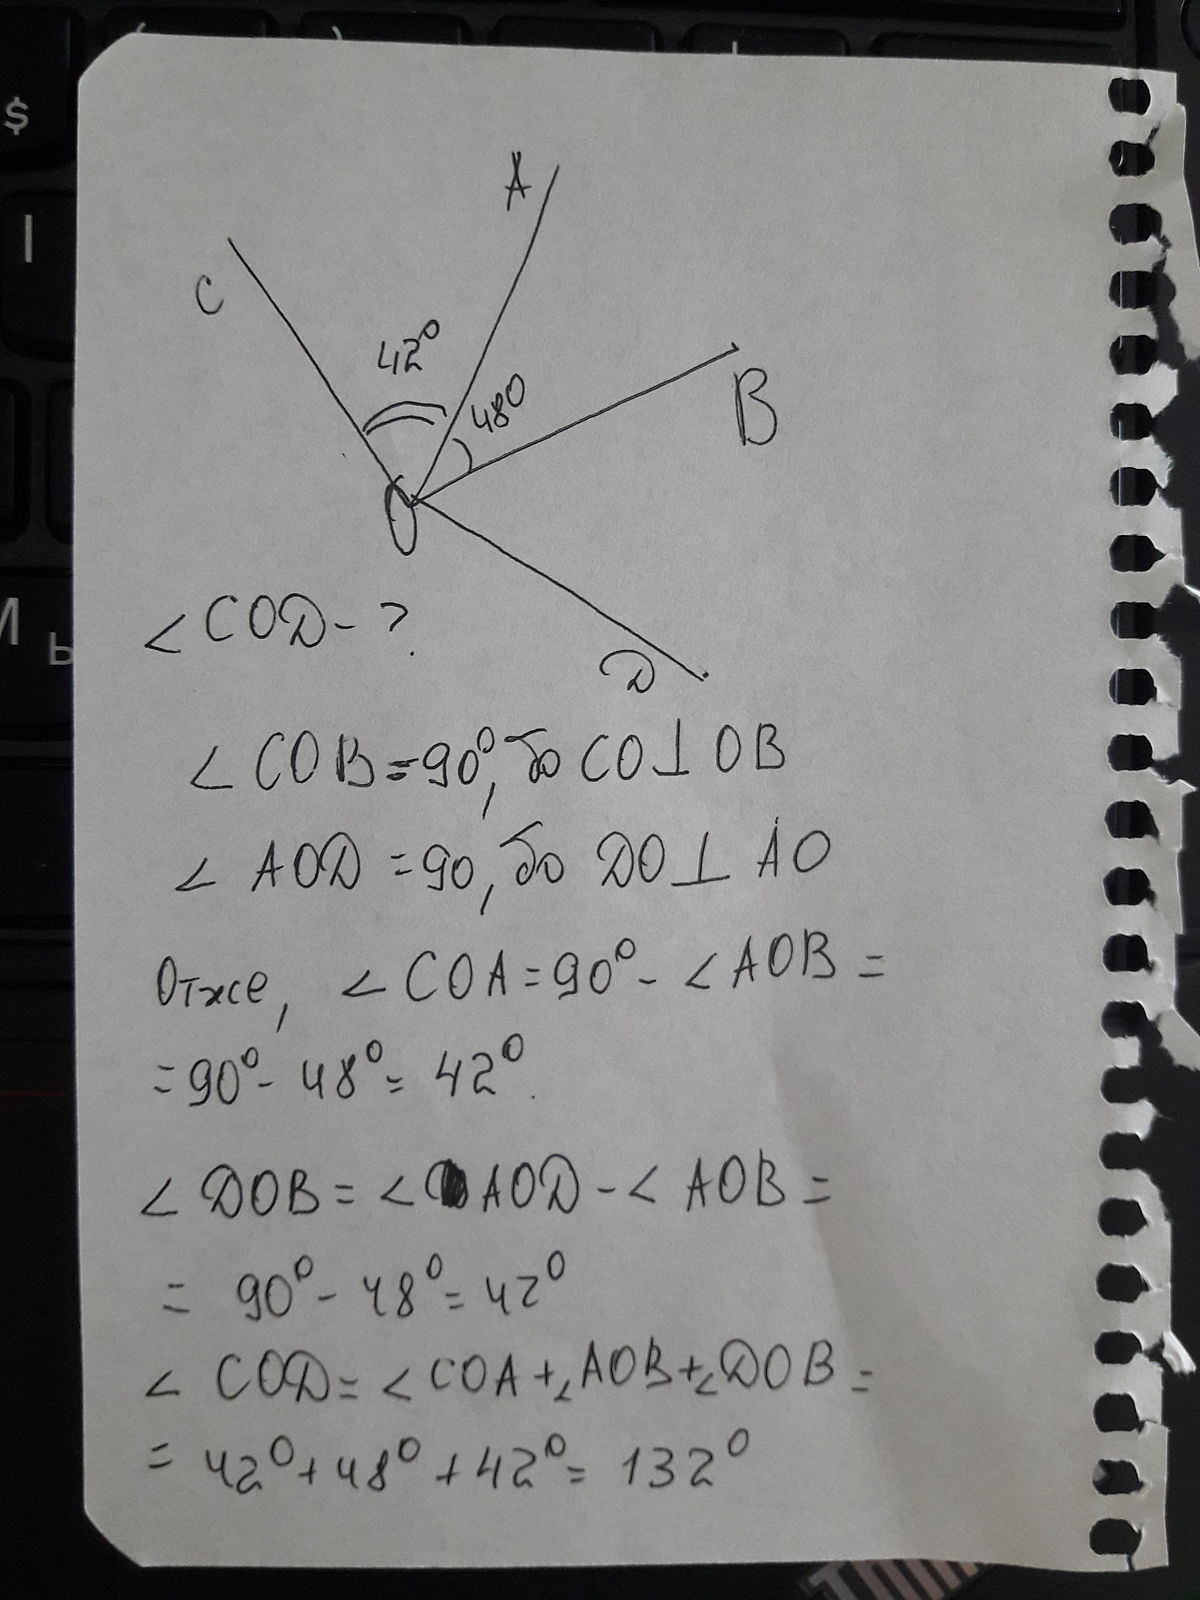 A
C
42°
480
B
O
∠COD-?
D
∠COB=90°, бо CO⊥OB
∠AOD=90, бо DO⊥AO
Отже, ∠COA=90°-∠AOB=
=90°-48°=42°.
∠DOB=∠AOD-∠AOB=
=90°-48°=42°
∠COD=∠COA+∠AOB+∠DOB=
=42°+48°+42°=132°
$
И
Ы